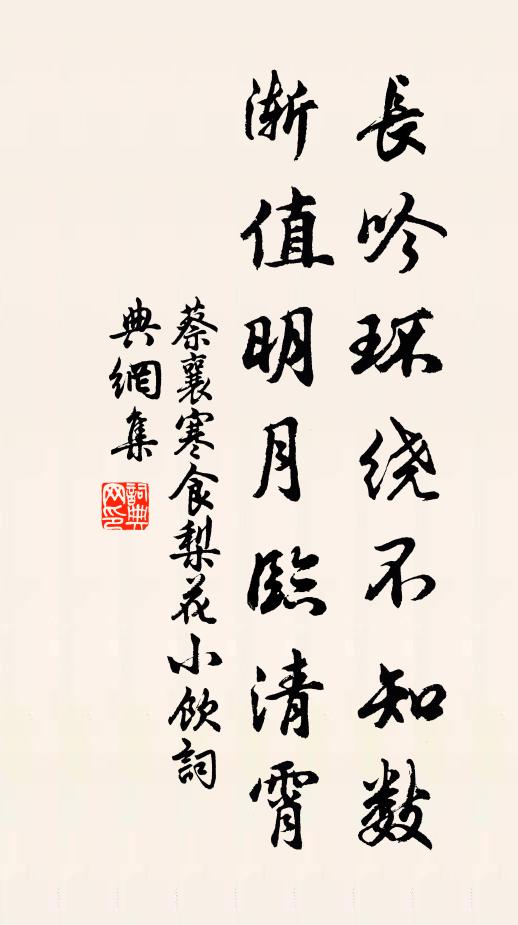 長吟环绕不知数
渐值明月臨清霄
蔡襄寒食梨花小飲詞
典網集
詞典网印